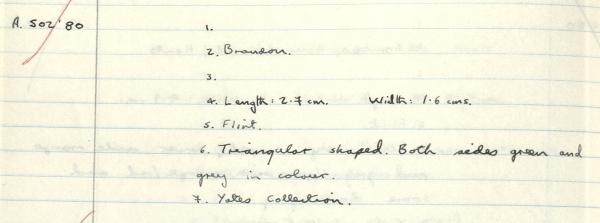 A. 502'80
1.
2. Brandon.
3.
4. Length: 2.7 cm. Width: 1.6 cms.
5. Flint.
6. Triangular shaped. Both sides green and
grey in colour.
7. Yates Collection.